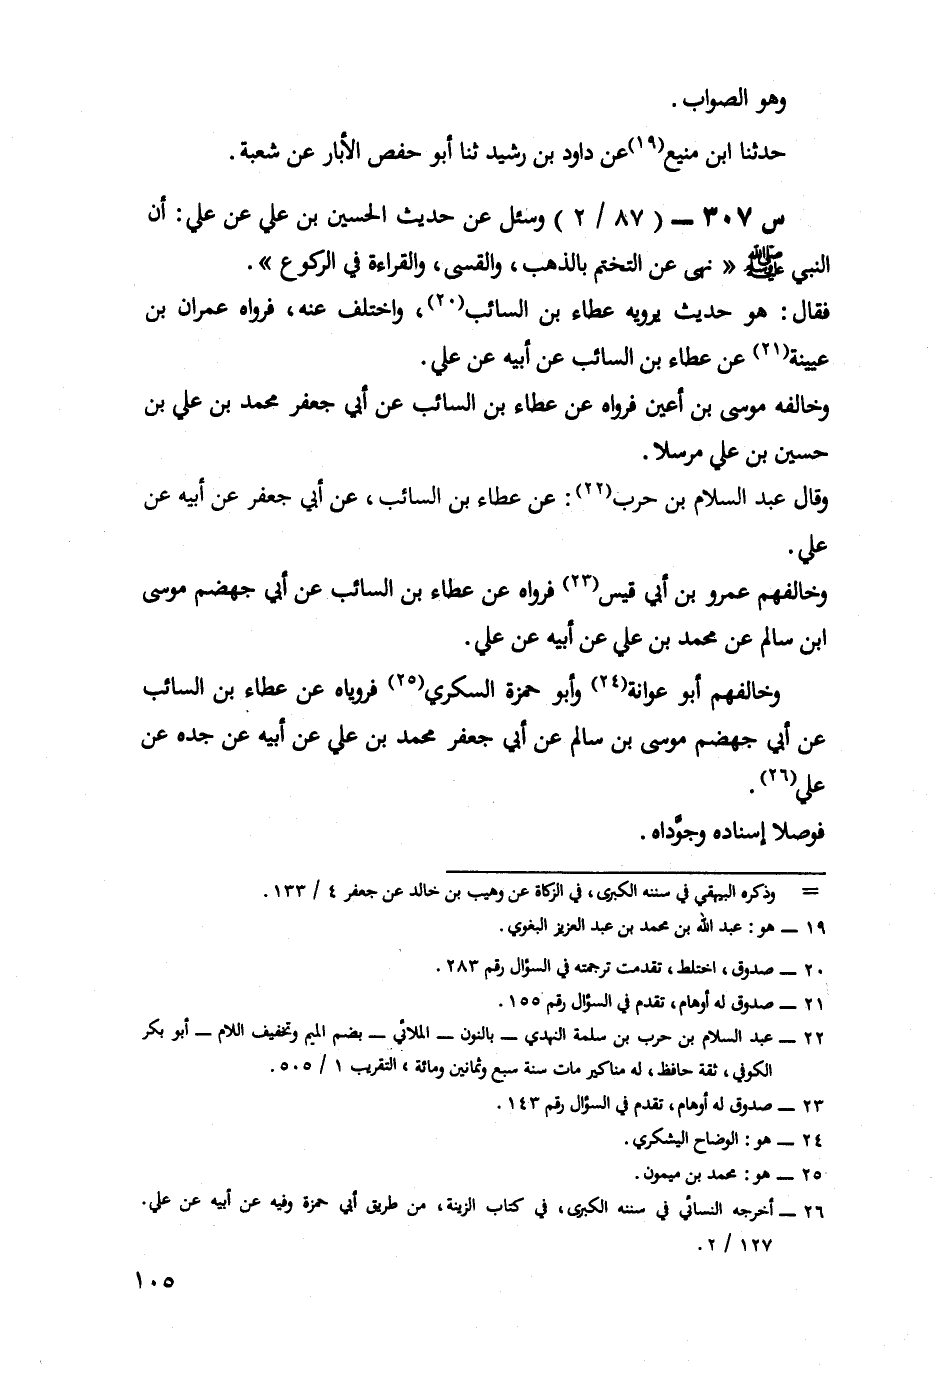 وهو الصواب .
حدثنا ابن منيع(١٩) عن داود بن رشيد ثنا أبو حفص الأبار عن شعبة .
س ٣٠٧ ــ ( ٨٧ / ٢ ) وسئل عن حديث الحسين بن علي عن علي : أن
النبي ﷺ « نهى عن التختم بالذهب ، والقسى ، والقراءة في الركوع » .
فقال : هو حديث يرويه عطاء بن السائب(٢٠) ، واختلف عنه ، فرواه عمران بن
عيينة(٢١) عن عطاء بن السائب عن أبيه عن علي .
وخالفه موسى بن أعين فرواه عن عطاء بن السائب عن أبي جعفر محمد بن علي بن
حسين بن علي مرسلا .
وقال عبد السلام بن حرب(٢٢) : عن عطاء بن السائب ، عن أبي جعفر عن أبيه عن
علي .
وخالفهم عمرو بن أبي قيس(٢٣) فرواه عن عطاء بن السائب عن أبي جهضم موسى
ابن سالم عن محمد بن علي عن أبيه عن علي .
وخالفهم أبو عوانة(٢٤) وأبو حمزة السكري(٢٥) فروياه عن عطاء بن السائب
عن أبي جهضم موسى بن سالم عن أبي جعفر محمد بن علي عن أبيه عن جده عن
علي(٢٦) .
فوصلا إسناده وجوَّداه .
= وذكره البيهقي في سننه الكبرى ، في الزكاة عن وهيب بن خالد عن جعفر ٤ / ١٣٣ .
١٩ ــ هو : عبد الله بن محمد بن عبد العزيز البغوي .
٢٠ ــ صدوق ، اختلط ، تقدمت ترجمته في السؤال رقم ٢٨٣ .
٢١ ــ صدوق له أوهام ، تقدم في السؤال رقم ١٥٥ .
٢٢ ــ عبد السلام بن حرب بن سلمة النهدي ــ بالنون ــ الملائي ــ بضم الميم وتخفيف اللام ــ أبو بكر
الكوفي ، ثقة حافظ ، له مناكير مات سنة سبع وثمانين ومائة ، التقريب ١ / ٥٠٥ .
٢٣ ــ صدوق له أوهام ، تقدم في السؤال رقم ١٤٣ .
٢٤ ــ هو : الوضاح اليشكري .
٢٥ ــ هو : محمد بن ميمون .
٢٦ ــ أخرجه النسائي في سننه الكبرى ، في كتاب الزينة ، من طريق أبي حمزة وفيه عن أبيه عن علي .
١٢٧ / ٢ .
١٠٥